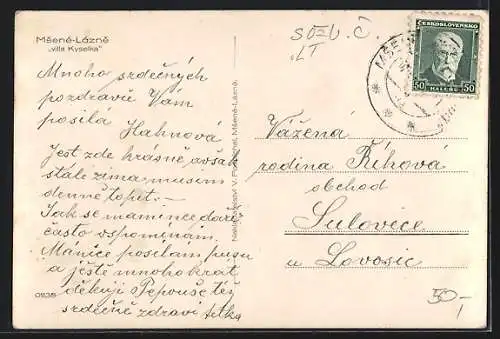 Mšené-Lázně
„villa Kyselka“
Mnoho srdečných
pozdravů Vám
posílá Hahnová
Jest zde krásně avšak
stále zima musím
denně topit. –
Jak se mamince daří
často vspomínám.
Mánice posílám pusu
a ještě mnoho krát
děkuji Pepouše též
srdečně zdraví tetka
0938
Mšené-Lázně.
SOZV. Č.
LT
MŠENÉ
ČESKOSLOVENSKO
50 50
HALÉŘŮ
Vážená
rodina Říhová
obchod
Sulovice
u Lovosic
50,-